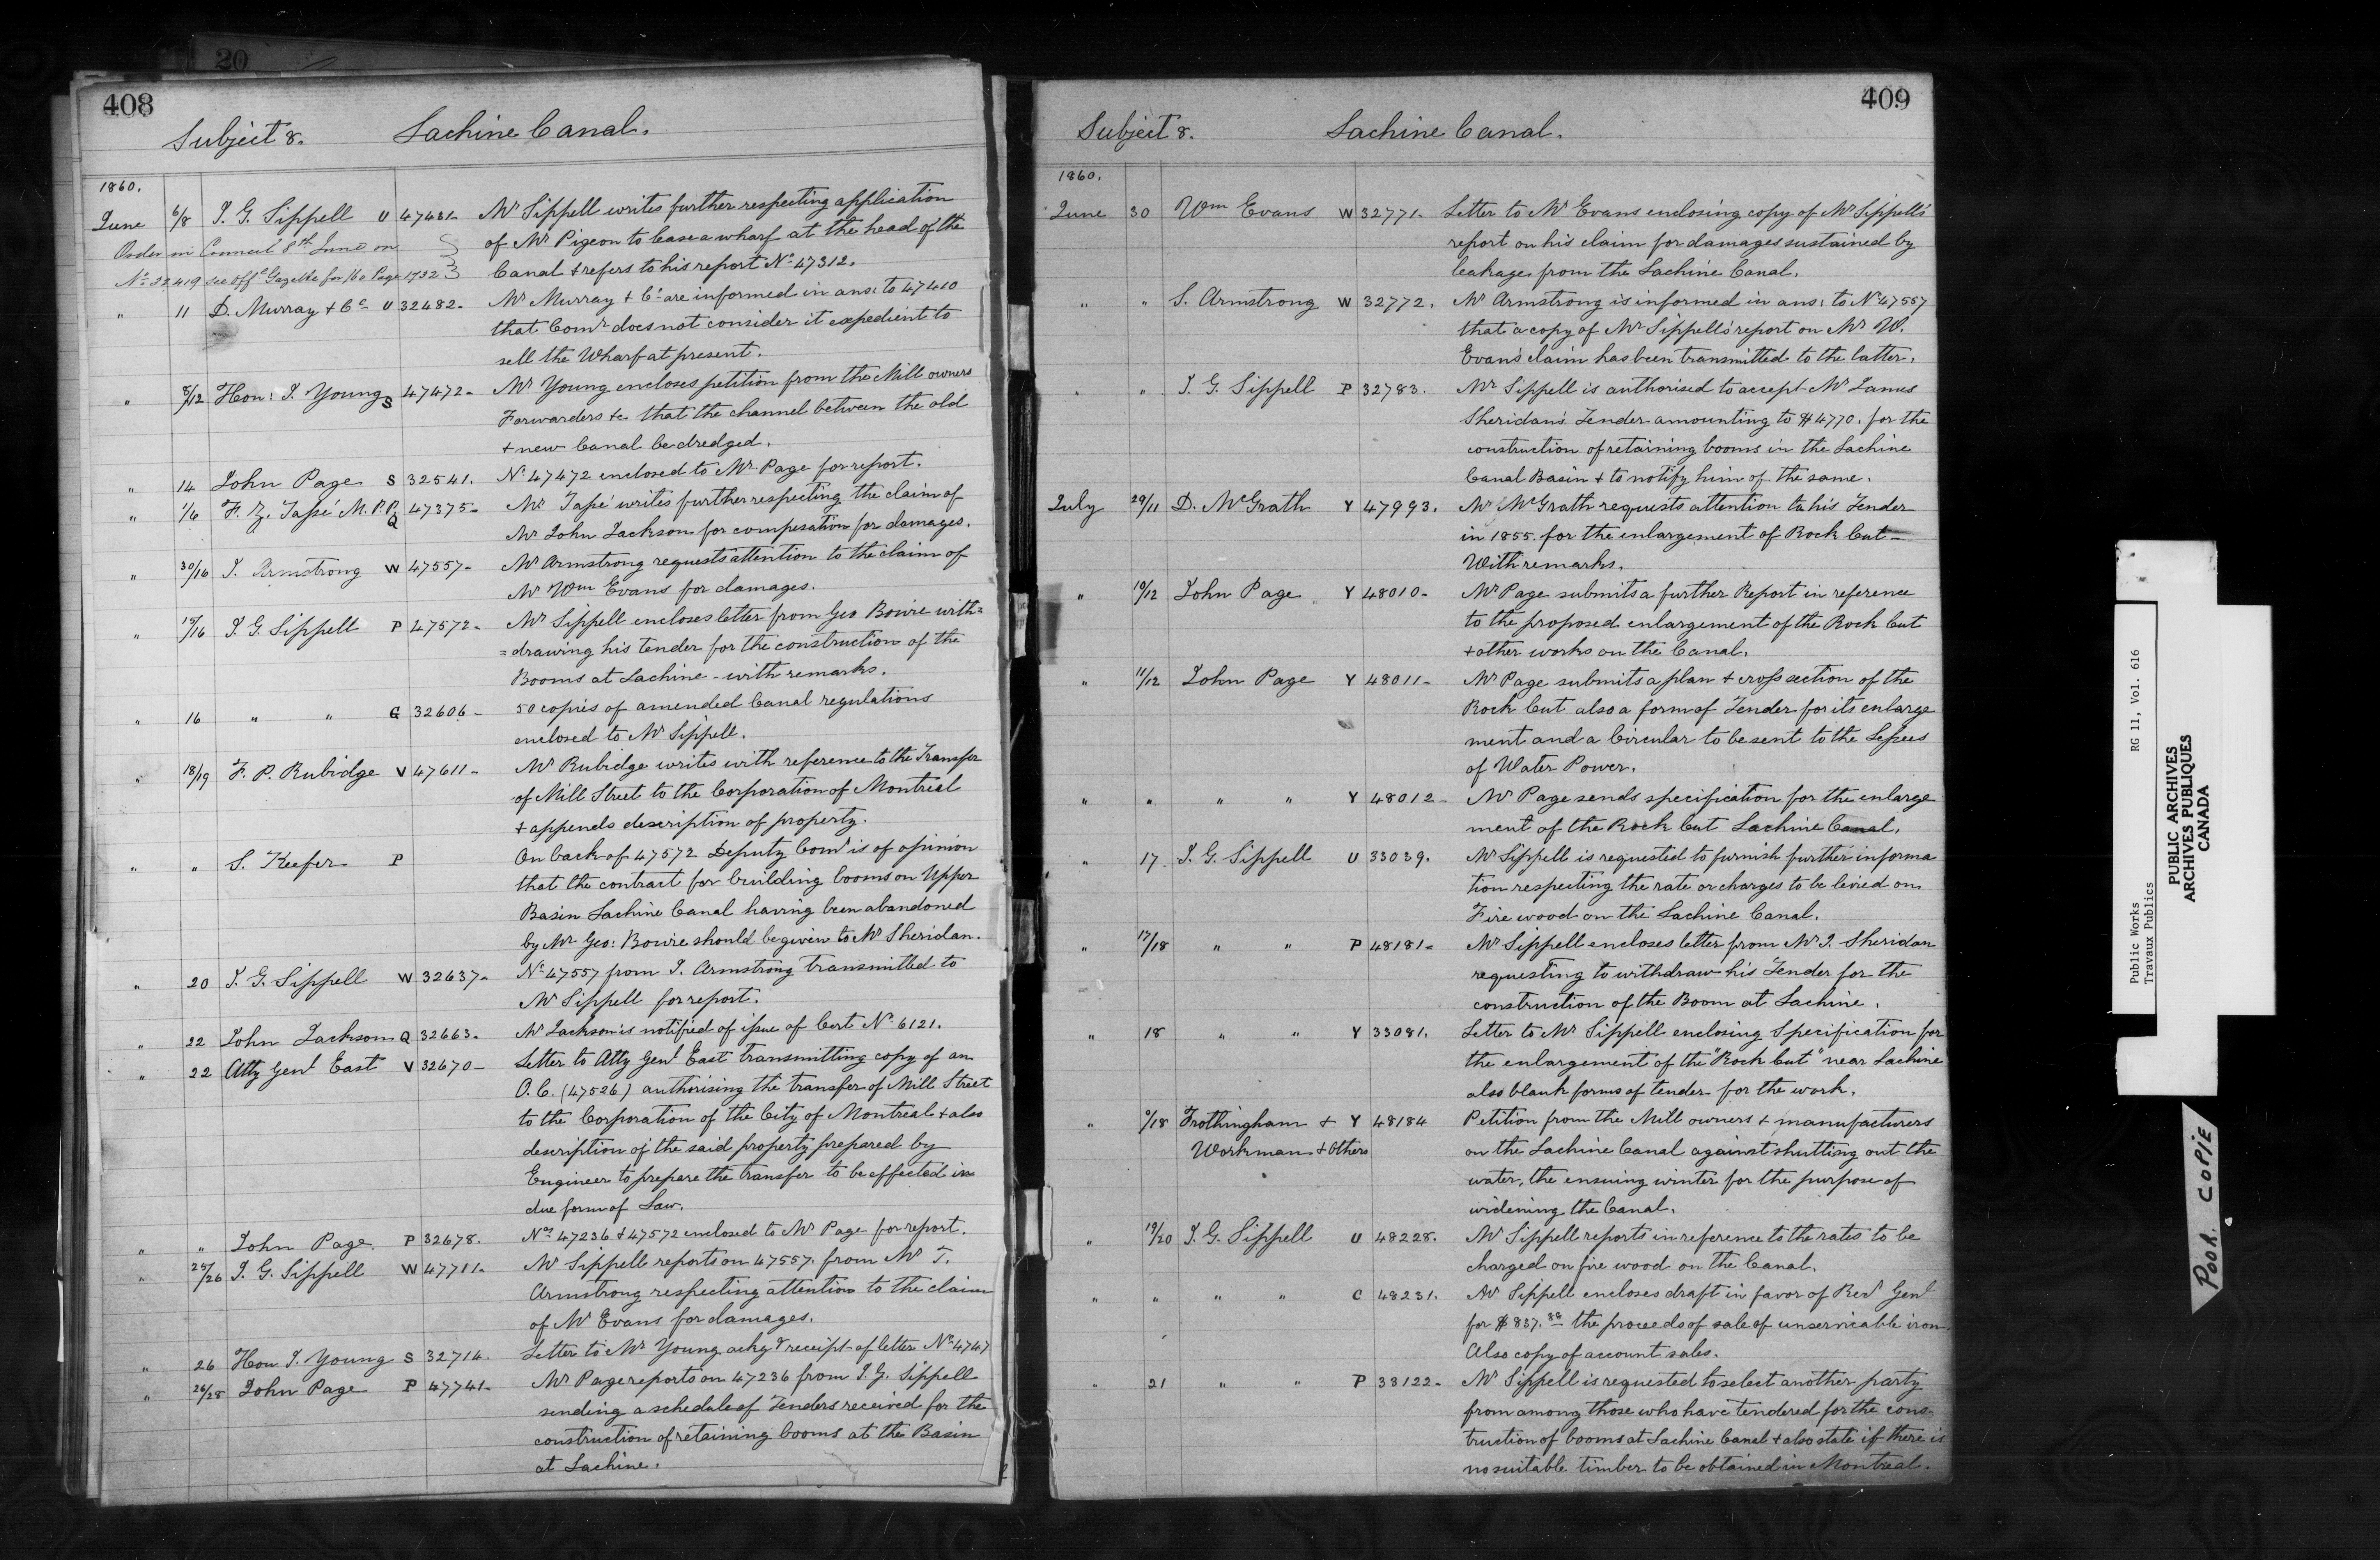 20
408
Subject 8. Lachine Canal.
1860.
June 6/8 J. G. Sippell U 47431- Mr Sippell writes further respecting application
Order in Council 8th June on of Mr Pigeon to lease a wharf at the head of the
No 22419 see Offl Gazette for /60 Page 1732 Canal + refers to his report No 47312.
" 11 D. Murray + Co U 32482- Mr Murray + Co are informed in ans: to 47410
that Comr does not consider it expedient to
sell the Wharf at present.
" 8/12 Hon: J. Young S 47472- Mr Young encloses petition from the Mill owners
Forwarders &c that the channel between the old
+ new Canal be dredged.
" 14 John Page S 32541. No 47472 enclosed to Mr Page for report.
" 1/6 F. Z. Tapé M.P.P. Q 47375- Mr Tapé writes further respecting the claim of
Mr John Jackson for compesation for damages.
" 30/16 J. Armstrong W 47557- Mr Armstrong requests attention to the claim of
Mr Wm Evans for damages.
" 15/16 J. G. Sippell P 47572- Mr Sippell encloses letter from Geo Bowie with=
=drawing his tender for the construction of the
Booms at Lachine - with remarks.
" 16 " " G 32606- 50 copies of amended Canal regulations
enclosed to Mr Sippell.
" 18/19 F. P. Rubidge V 47611- Mr Rubidge writes with reference to the Transfer
of Mill Street to the Corporation of Montreal
+ appends description of property.
" " S. Keefer P On back of 47572 Deputy Comr is of opinion
that the contract for building booms on Upper
Basin Lachine Canal having been abandoned
by Mr Geo: Bowie should be given to Mr Sheridan.
" 20 J. G. Sippell W 32637- No 47557 from J. Armstrong transmitted to
Mr Sippell for report.
" 22 John Jackson Q 32663- Mr Jackson is notified of issue of Cert No 6121.
" 22 Atty Genl East V 32670- Letter to Atty Genl East transmitting copy of an
O.C. (47526) authorising the transfer of Mill Street
to the Corporation of the City of Montreal + also
description of the said property prepared by
Engineer to prepare the transfer to be effected in
due form of Law.
" " John Page. P 32678. Nos 47236 & 47572 enclosed to Mr Page for report.
" 25/26 J. G. Sippell W 47711- Mr Sippell reports on 47557. from Mr T.
Armstrong respecting attention to the claim
of Mr Evans for damages.
" 26 Hon J. Young S 32714. Letter to Mr Young ackgd receipt of letter No 4747
" 26/28 John Page P 47741- Mr Page reports on 47236 from J. G. Sippell
sending a schedule of Tenders received for the
construction of retaining booms at the Basin
at Lachine.
409
Subject 8. Lachine Canal.
1860.
June 30 Wm Evans W 32771. Letter to Mr Evans enclosing copy of Mr Sippell's
report on his claim for damages sustained by
leakage from the Lachine Canal.
" " S. Armstrong W 32772. Mr Armstrong is informed in ans: to No 47557
that a copy of Mr Sippell's report on Mr W.
Evans' claim has been transmitted to the latter.
" " J. G. Sippell P 32783. Mr Sippell is authorised to accept Mr James
Sheridan's Tender amounting to $4770. for the
construction of retaining booms in the Lachine
Canal Basin + to notify him of the same.
July 29/11 D. McGrath Y 47993. Mr McGrath requests attention to his Tender
in 1855. for the enlargement of Rock Cut -
With remarks.
" 10/12 John Page Y 48010- Mr Page submits a further Report in reference
to the proposed enlargement of the Rock Cut
+ other works on the Canal.
" 11/12 John Page Y 48011- Mr Page submits a plan + cross section of the
Rock Cut also a form of Tender for its enlarge
ment and a Circular to be sent to the Lessees
of Water Power.
" " " " Y 48012- Mr Page sends specification for the enlarge
ment of the Rock Cut Lachine Canal.
" 17 J. G. Sippell U 33039. Mr Sippell is requested to furnish further informa
tion respecting the rate or charges to be levied on
Fire wood on the Lachine Canal.
" 17/18 " " P 48181- Mr Sippell encloses letter from Mr J. Sheridan
requesting to withdraw his Tender for the
construction of the Boom at Lachine.
" 18 " " Y 33081. Letter to Mr Sippell enclosing Specification for
the enlargement of the "Rock Cut" near Lachine
also blank forms of tender for the work.
" 9/18 Frothingham + Y 48184 Petition from the Mill owners + manufacturers
Workman + Others on the Lachine Canal against shutting out the
water, the ensuing winter for the purpose of
widening the Canal.
" 19/20 J. G. Sippell U 48228. Mr Sippell reports in reference to the rates to be
charged on fire wood on the Canal.
" " " " C 48231. Mr Sippell encloses draft in favor of Recr Genl
for $837.88 the proceeds of sale of unservicable iron.
Also copy of account sales.
" 21 " " P 33122- Mr Sippell is requested to select another party
from among those who have tendered for the cons-
truction of booms at Lachine Canal + also state if there is
no suitable timber to be obtained in Montreal.
Public Works RG 11, Vol. 616
Travaux Publics
PUBLIC ARCHIVES
ARCHIVES PUBLIQUES
CANADA
POOR COPIE